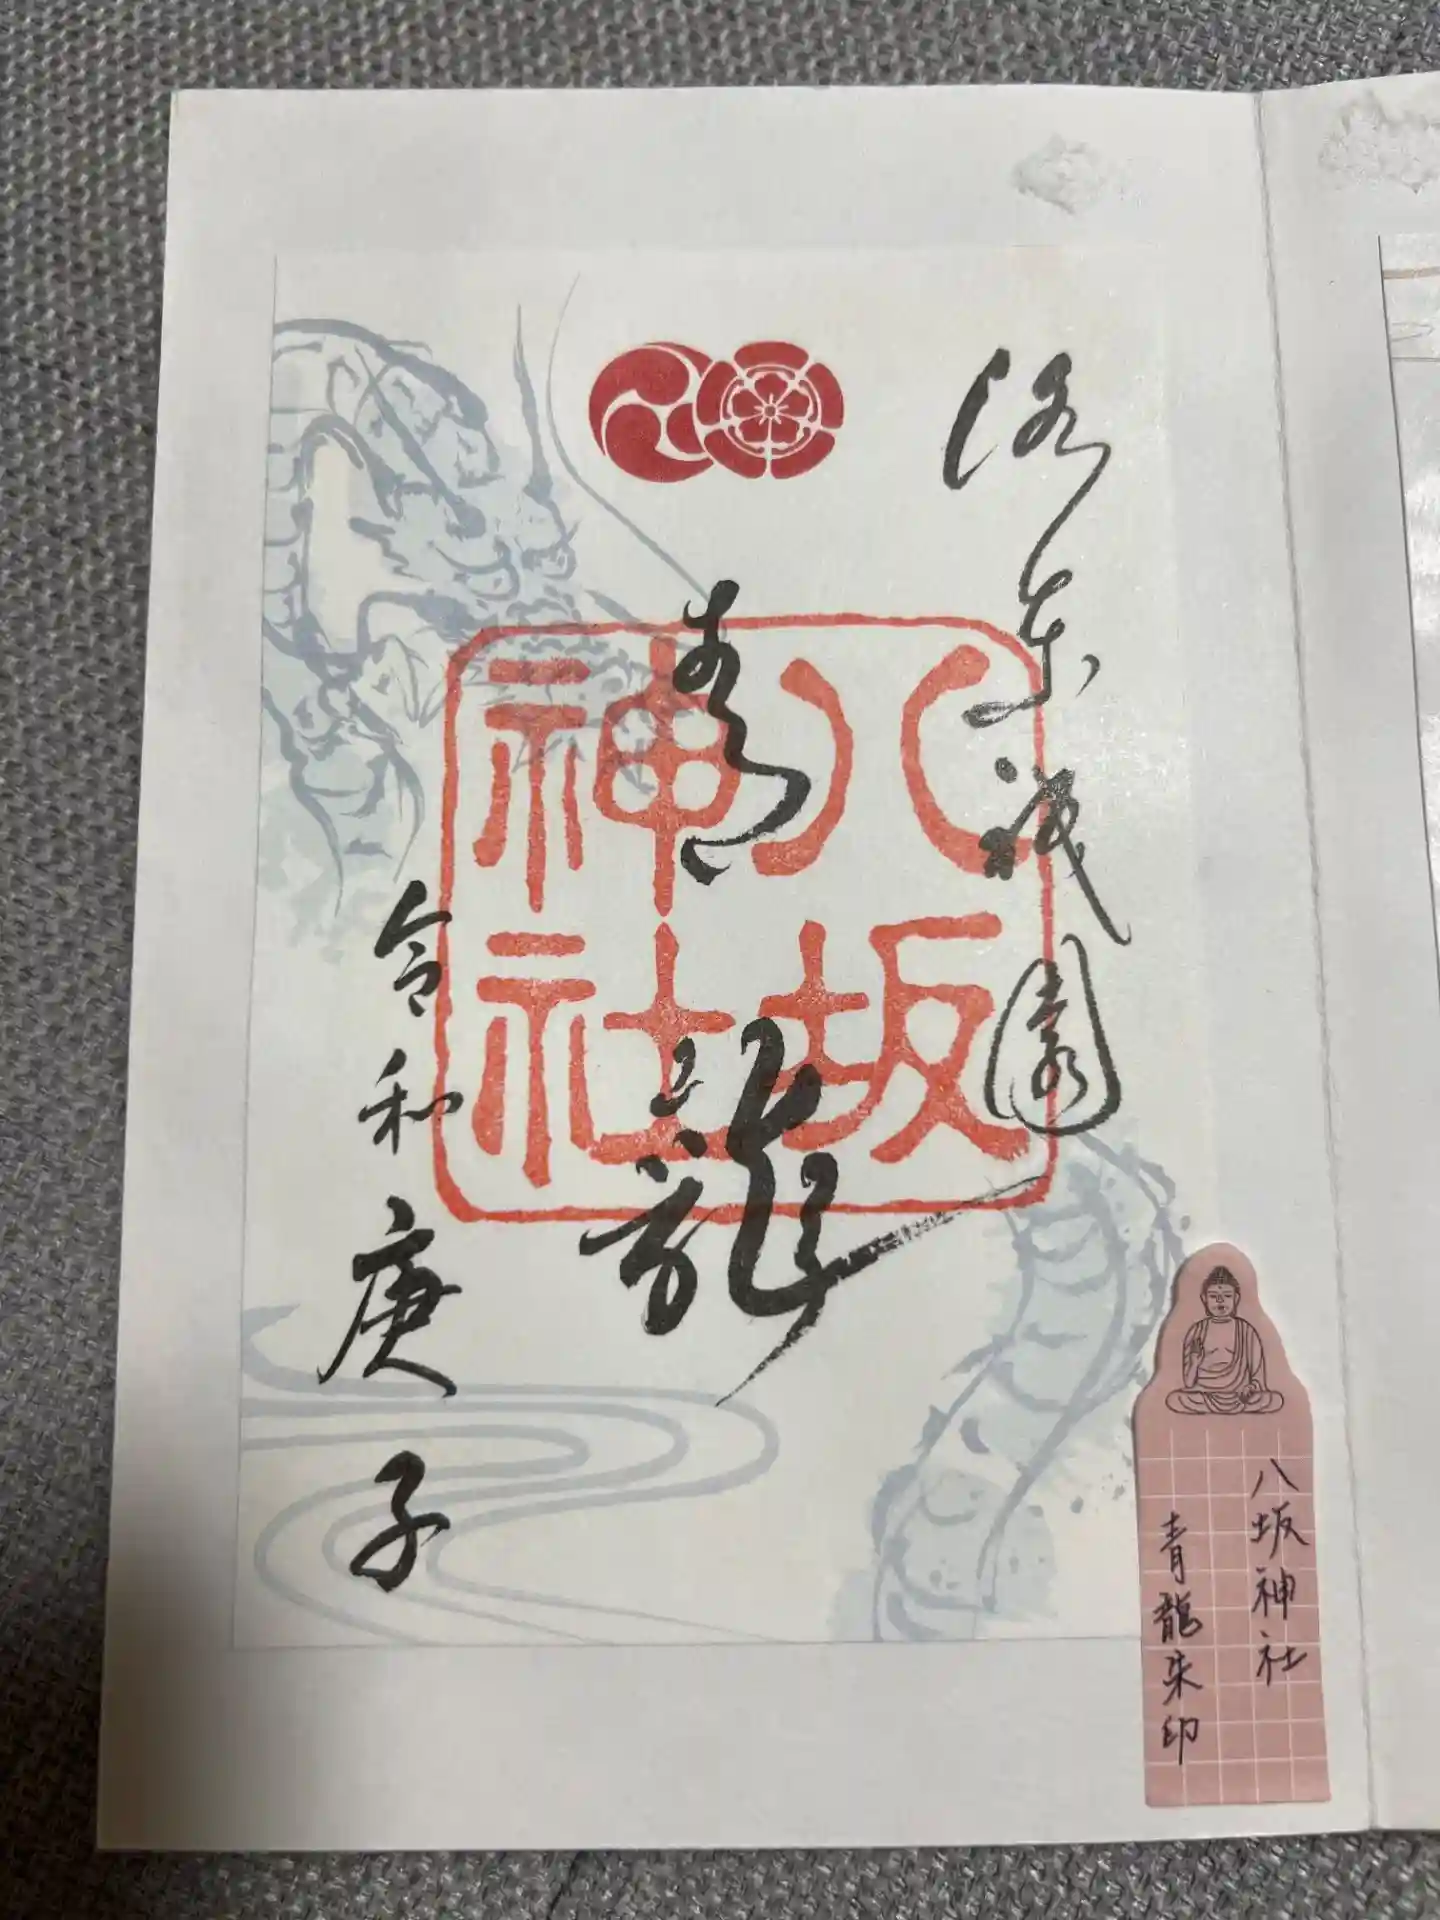 洛東祇園
青龍
令和庚子
八坂
神社
八坂神社
青龍朱印